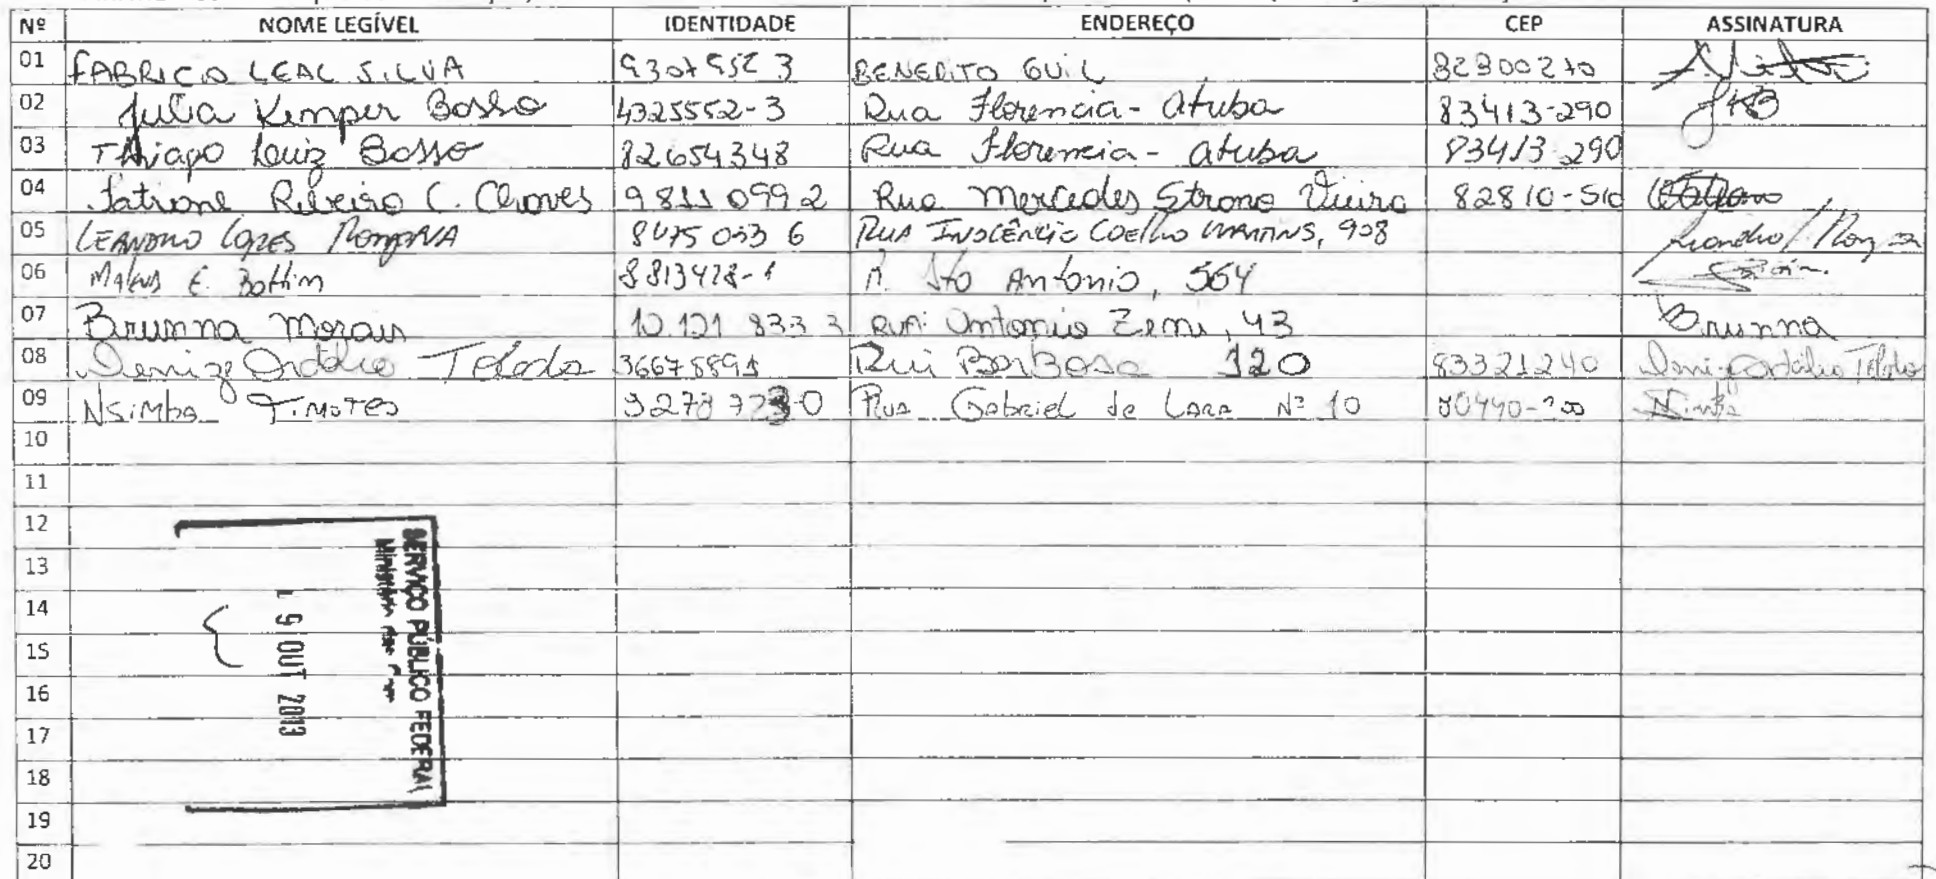 Nº NOME LEGÍVEL IDENTIDADE ENDEREÇO CEP ASSINATURA
01 FABRICIO LEAL SILVA BENEDITO GUIL 82300270
02 Julia Kemper Bosso 4325552-3 Rua Florencia - Atuba 83413-290 JKB
03 Thiago Luiz Bosso 82654348 Rua Florencia - Atuba 83413-290
04 Tatiane Ribeiro C. Chaves 98110992 Rua Mercedes Strano Vieira 82810-510
05 LEANDRO LOPES 8475 053 6 RUA INOCÊNCIO COELHO MARTINS, 908 Leandro
06 E. Bottim R. Sto Antonio, 564
07 Brunna Morais 10.121 833 3 RUA: Antonio Zem, 43 Brunna
08 Denize Ordálio Toledo 36678891 Rui Barbosa 120 83321240 Denize Ordálio Toledo
09 NSIMBA TIMOTEO Rua Gabriel de Lara Nº 10 Nsimba
10
11
12
13
14
15
16
17
18
19
20
SERVIÇO PÚBLICO FEDERAL
19 OUT 2013